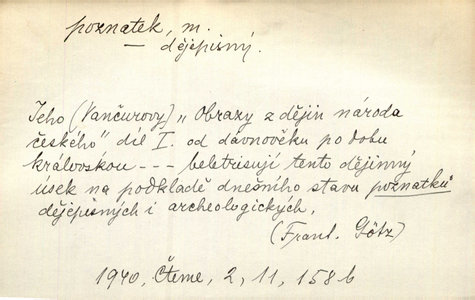 poznatek, m.
— dějepisný.
Jeho (Vančurovy) „Obrazy z dějin národa
českého" díl I. od dávnověku po dobu
královskou - - - beletrisují tento dějinný
úsek na podkladě dnešního stavu poznatků
dějepisných i archeologických.
(Frant. Götz)
1940, Čteme, 2, 11, 158 b